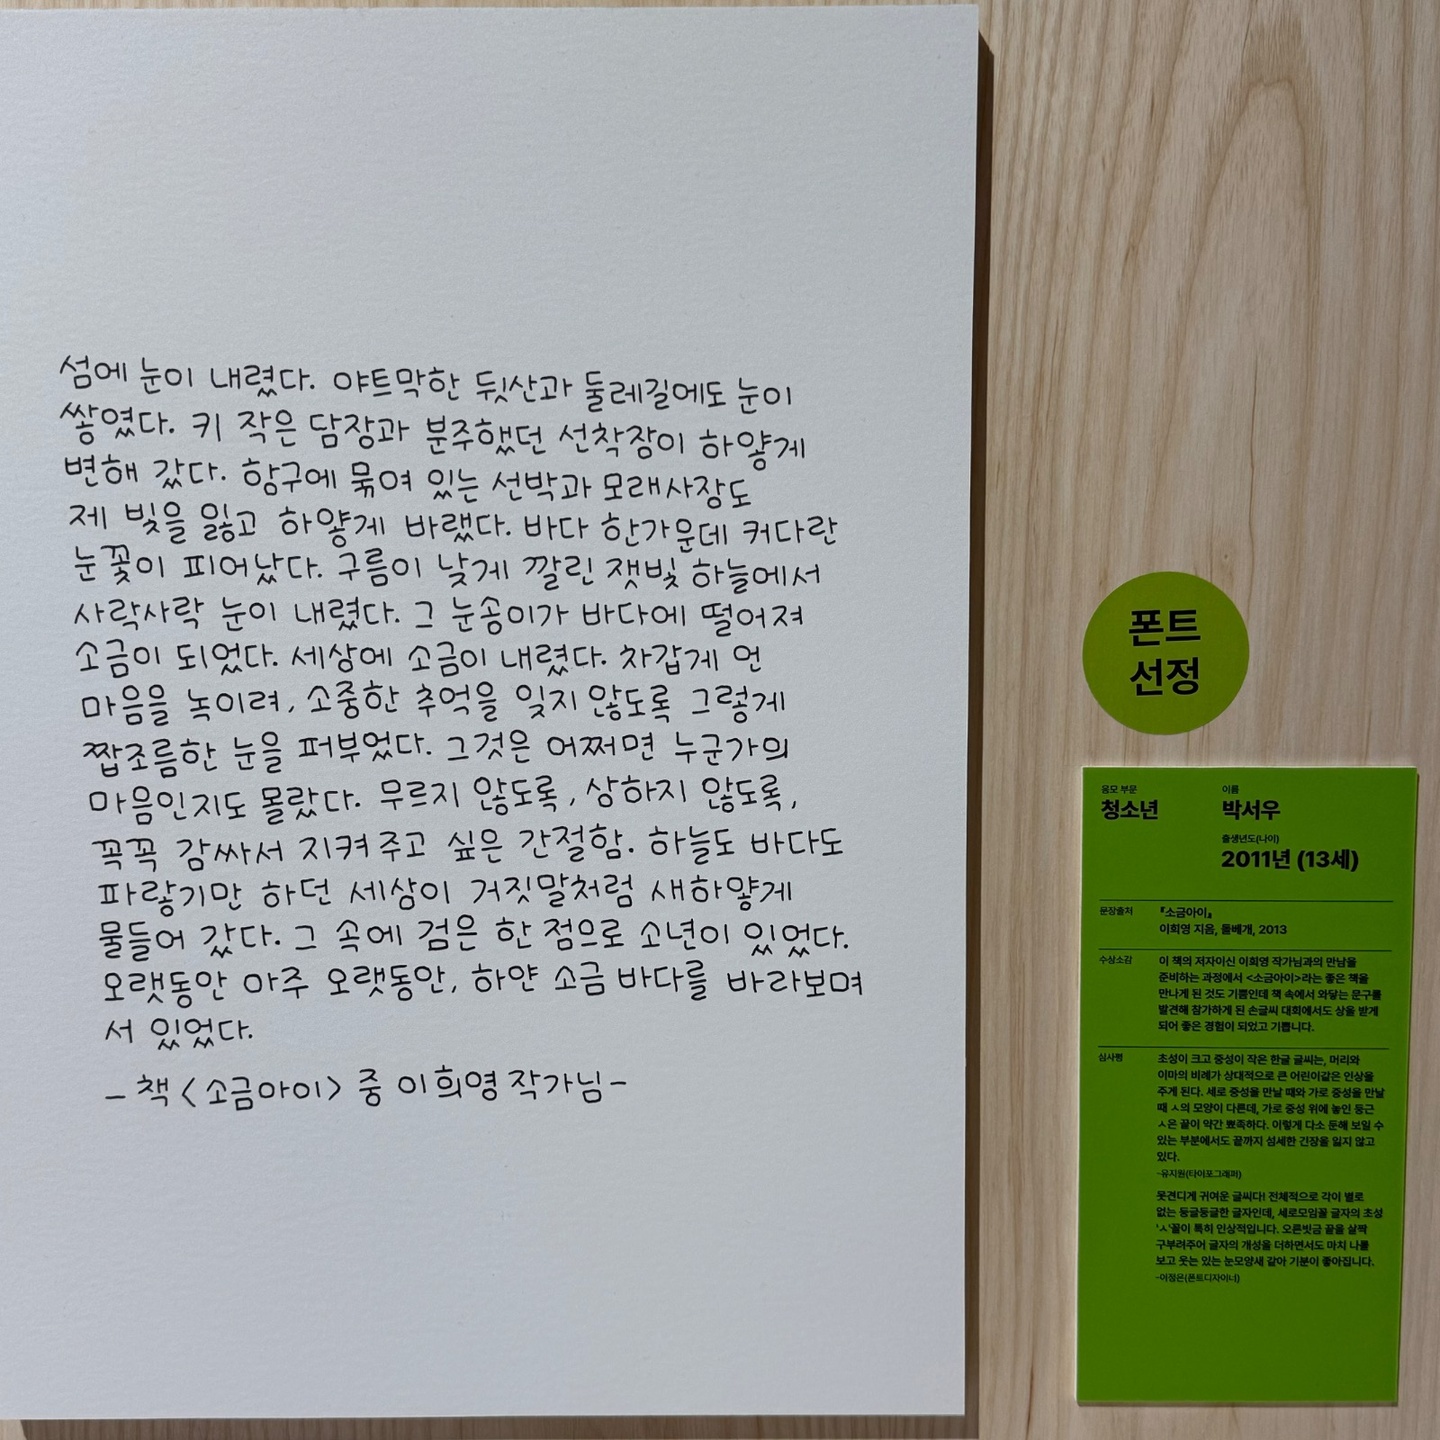 섬에 눈이 내렸다. 야트막한 뒷산과 둘레길에도 눈이
쌓였다. 키 작은 담장과 분주했던 선착장이 하얗게
변해 갔다. 항구에 묶여 있는 선박과 모래사장도
제 빛을 잃고 하얗게 바랬다. 바다 한가운데 커다란
눈꽃이 피어났다. 구름이 낮게 깔린 잿빛 하늘에서
사락사락 눈이 내렸다. 그 눈송이가 바다에 떨어져
소금이 되었다. 세상에 소금이 내렸다. 차갑게 언
마음을 녹이려, 소중한 추억을 잊지 않도록 그렇게
짭조름한 눈을 퍼부었다. 그것은 어쩌면 누군가의
마음인지도 몰랐다. 무르지 않도록, 상하지 않도록,
꼭꼭 감싸서 지켜주고 싶은 간절함. 하늘도 바다도
파랗기만 하던 세상이 거짓말처럼 새하얗게
물들어 갔다. 그 속에 검은 한 점으로 소년이 있었다.
오랫동안 아주 오랫동안, 하얀 소금 바다를 바라보며
서 있었다.
- 책 <소금아이> 중 이희영 작가님-
폰트
선정
응모 부문
청소년
이름
박서우
출생년도(나이)
2011년 (13세)
문장출처
『소금아이』
이희영 지음, 돌베개, 2013
수상소감
이 책의 저자이신 이희영 작가님과의 만남을
준비하는 과정에서 <소금아이>라는 좋은 책을
만나게 된 것도 기쁨인데 책 속에서 와닿는 문구를
발견해 참가하게 된 손글씨 대회에서도 상을 받게
되어 좋은 경험이 되었고 기쁩니다.
심사평
초성이 크고 중성이 작은 한글 글씨는, 머리와
이마의 비례가 상대적으로 큰 어린이같은 인상을
주게 된다. 세로 중성을 만날 때와 가로 중성을 만날
때 ㅅ의 모양이 다른데, 가로 중성 위에 놓인 둥근
ㅅ은 끝이 약간 뾰족하다. 이렇게 다소 둔해 보일 수
있는 부분에서도 끝까지 섬세한 긴장을 잃지 않고
있다.
-유지원(타이포그래퍼)
못견디게 귀여운 글씨다! 전체적으로 각이 별로
없는 둥글둥글한 글자인데, 세로모임꼴 글자의 초성
'ㅅ'꼴이 특히 인상적입니다. 오른빗금 끝을 살짝
구부려주어 글자의 개성을 더하면서도 마치 나를
보고 웃는 있는 눈모양새 같아 기분이 좋아집니다.
-이정은(폰트디자이너)